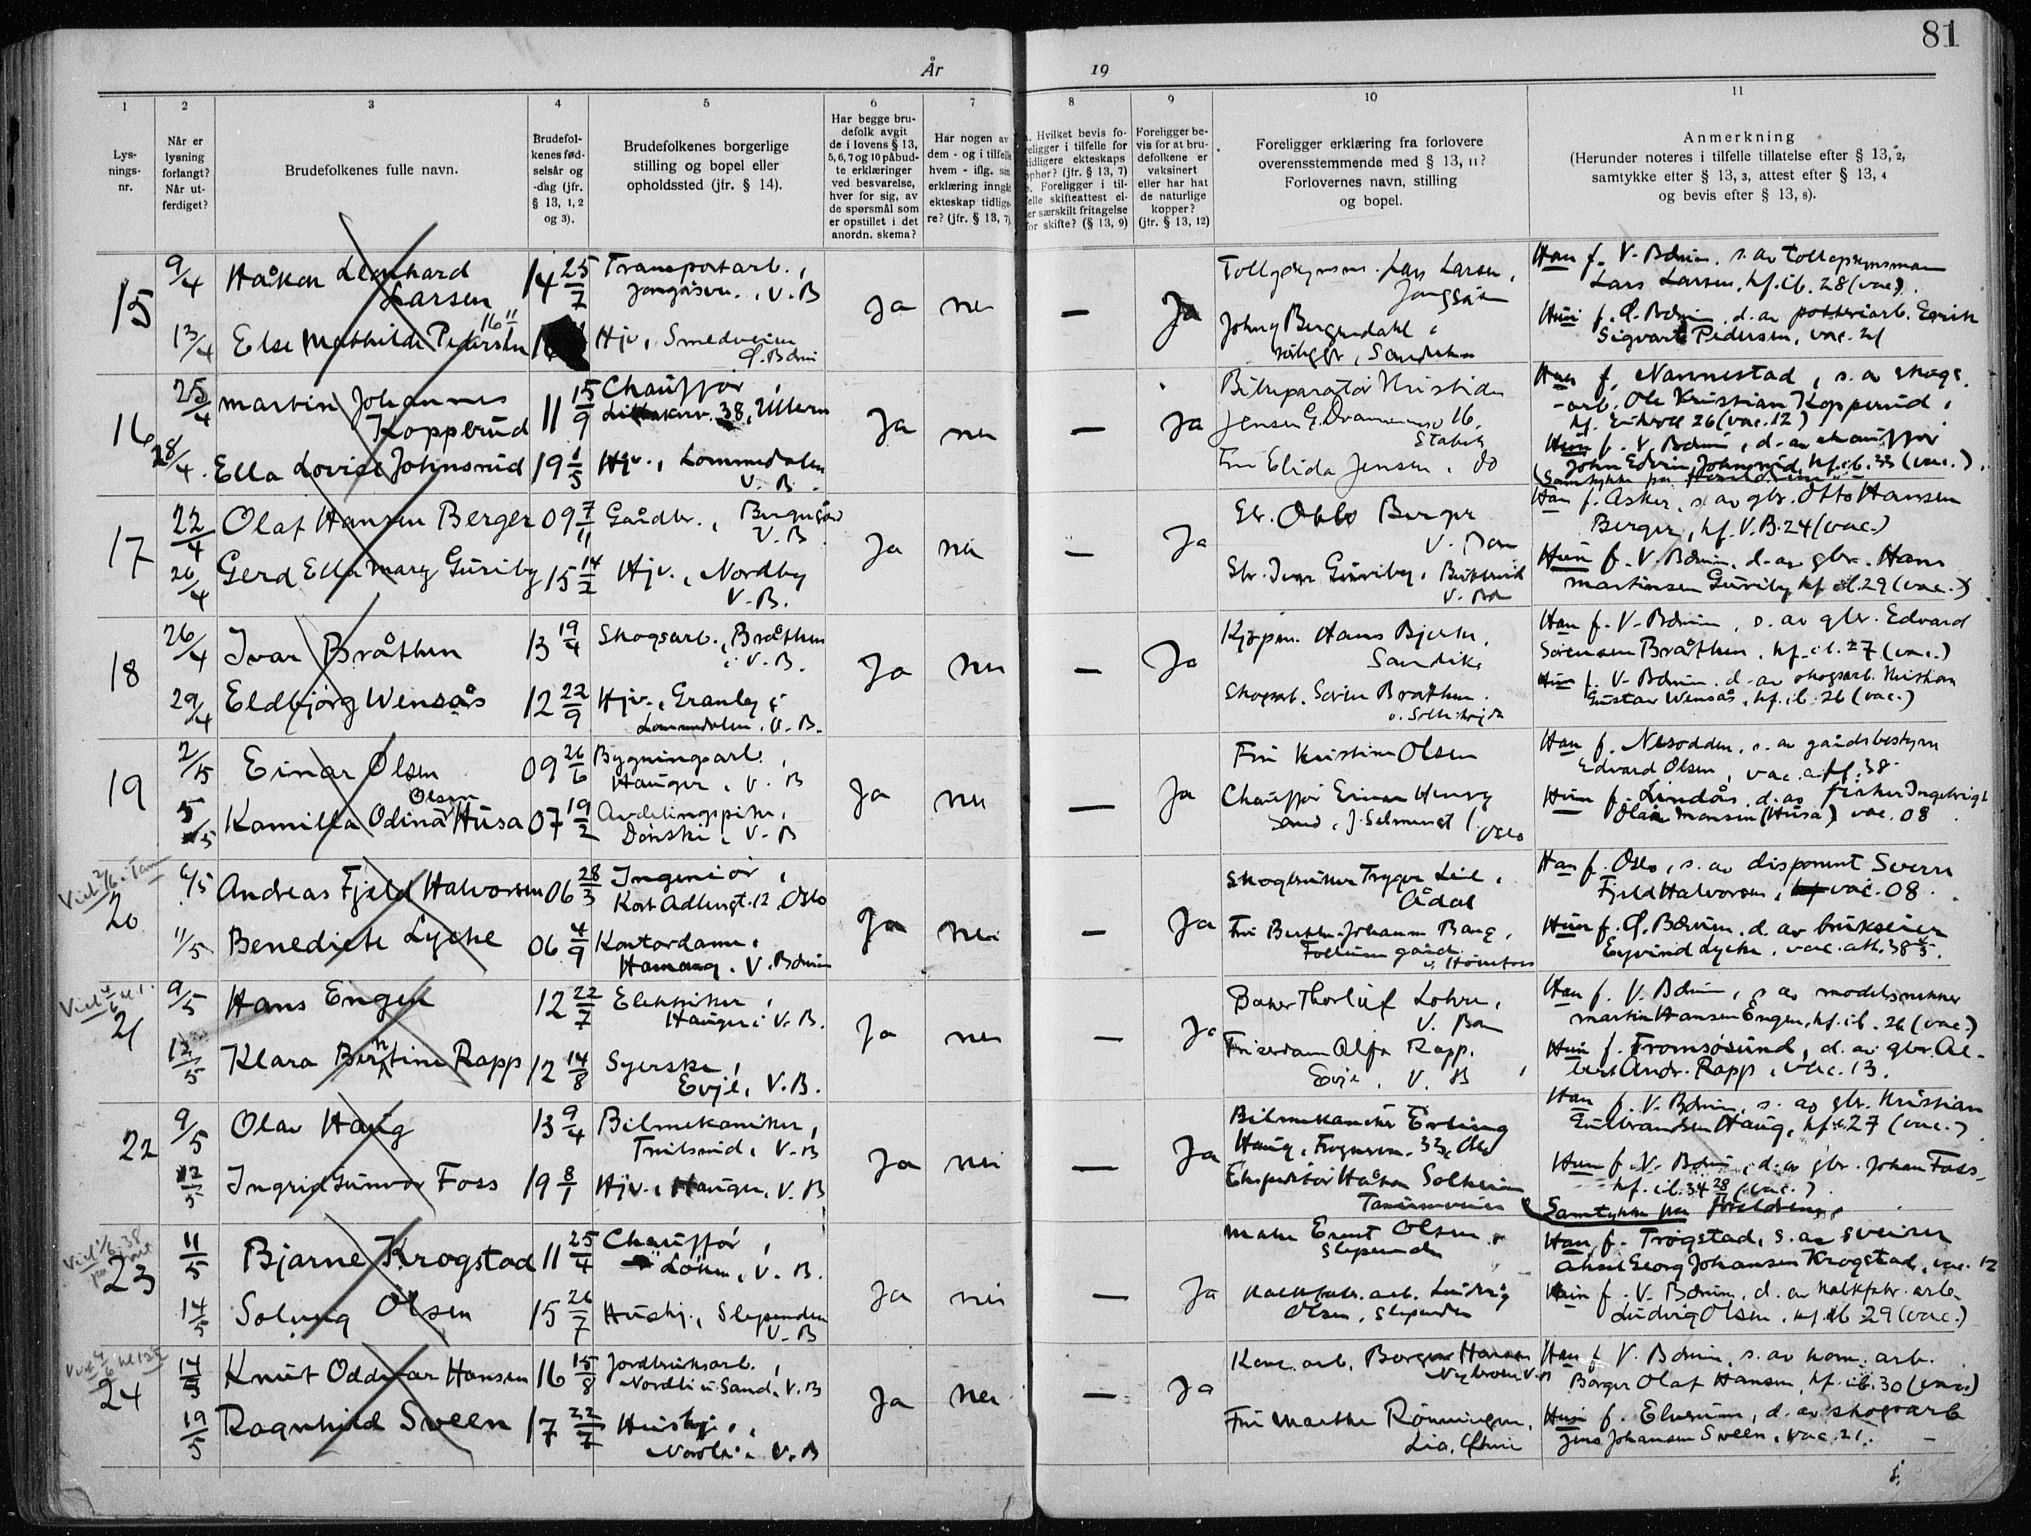 81
År
19
1
2
3
4
5
6
7
8
9
10
11
Lys-
nings-
nr.
Når er
lysning
forlangt?
Når ut-
ferdiget?
Brudefolkenes fulle navn.
Brudefol-
kenes fød-
selsår og
-dag (jfr.
§ 13, 1, 2
og 3).
Brudefolkenes borgerlige
stilling og bopel eller
opholdssted (jfr. § 14).
Har begge bru-
defolk avgit
de i lovens § 13,
5, 6, 7 og 10 påbud-
te erklæringer
ved besvarelse,
hver for sig, av
de spørsmål som
er opstillet i det
anordn. skema?
Har nogen av
dem - og i tilfelle
hvem - iflg. sin
erklæring inngåt
ekteskap tidlige-
re? (jfr. § 13, 7)
Hvilket bevis fo-
religger i tilfelle for
tidligere ekteskaps
ophør? (jfr. § 13, 7)
Foreligger i til-
felle skifteattest el-
ler særskilt fritagelse
for skifte? (§ 13, 9)
Foreligger be-
vis for at bru-
defolkene er
vaksinert
eller har hat
de naturlige
kopper?
(jfr. § 13, 12)
Foreligger erklæring fra forlovere
overensstemmende med § 13, 11?
Forlovernes navn, stilling
og bopel.
Anmerkning
(Herunder noteres i tilfelle tillatelse efter § 13, 2,
samtykke efter § 13, 3, attest efter § 13, 4
og bevis efter § 13, 8).
15
9/4 Håkon Leonhard
Larsen 14 25/7 Transportarb.,
Jongåsen., V. B
Ja nei — Ja
13/4 Else Mathilde Pedersen 16 11
Hjv., Smedveien
Ø. Bærum
Tollopsynsm. Lars Larsen,
Jongsåsen
Johny Bergendahl,
Sandvika
Han f. V. Bærum. s. av tollopsynsmann
Lars Larsen, kf. ib. 28 (vac.).
Hun f. Ø. Bærum, d. av
Sigvart Pedersen, vac. 21
16
25/4 Martin Johannes
Kopperud 11 15/9 Chauffør,
38, Ullern
Ja nei — Ja
28/4. Ella Lovise Johnsrud 19 1/5 Hjv., Lommedalen
V. B.
Bilreparatør Kristian
Jensen G. Drammensv. 16,
Stabekk
Fru Elida Jensen, do
Han f. Nannestad, s. av skogs-
arb. Ole Kristian Kopperud,
kf. 26 (vac. 12)
Hun f. V. Bærum, d. av chauffør
John Edvin Johnsrud, kf. ib. 33 (vac.).
Samtykke fra foreldrene
17
22/4 Olaf Hansen Berger 09 7/11 Gårdbr.,
V. B.
Ja nei — Ja
26/4 Gerd Ella Mary Guriby 15 14/2 Hjv., Nordby
V. B.
Gbr. Otto Berger
V. Bærum
Gbr. Guriby,
V. Bærum
Han f. Asker, s. av gbr. Otto Hansen
Berger, kf. V. B. 24 (vac.)
Hun f. V. Bærum, d. av gbr. Hans
Martinsen Guriby kf. ib. 29 (vac.)
18
26/4 Ivar Bråthen 13 19/4 Skogsarb., Bråthen
i V. B.
Ja nei — Ja
29/4 Eldbjørg Wensås 12 22/9 Hjv., Granby i
Lommedalen, V. B.
Kjøpm. Hans Bjerke,
Sandvika
Skogsarb. Søren Bråthen.
Han f. V. Bærum, s. av gbr. Edvard
Sørensen Bråthen, kf. ib. 27 (vac.)
Hun f. V. Bærum. d. av skogsarb. Kristian
Gustav Wensås, kf. ib. 26 (vac.)
19
2/5 Einar Olsen 09 26/6 Bygningsarb.,
Hauger, V. B
Ja nei — Ja
5/5 Kamilla Odina Olsen Husa 07 19/2 Avdelingspike,
Dønski, V. B
Fru Kristine Olsen
Chauffør Einar Henry
Sand, Oslo
Han f. Nesodden, s. av gårdsbestyrer
Edvard Olsen, vac. att. 38
Hun f. Lindås, d. av fisker Ingebrigt
Olai Monsen (Husa) vac. 08
Viel 2/6. Tanum
20
6/5 Andreas Fjeld Halvorsen 06 28/3 Ingeniør,
Kort Adlersgt. 12, Oslo
Ja nei — Ja
11/5 Benedicte Lyche 06 4/9 Kontordame,
Hamang. V. Bærum
Skogbruker Trygve Lie,
Ådal
Fru Johanne Bang,
Follum gård
v. Hønefoss
Han f. Oslo, s. av disponent Sverre
Fjeld Halvorsen, vac. 08.
Hun f. Ø. Bærum, d. av brukseier
Eyvind Lyche, vac. att. 38
Viel 4/6 kl. 1.
21
9/5 Hans Engen 12 22/7 Elektriker,
Hauger i V. B.
Ja nei — Ja
12/5 Klara Berntine Rapp 12 14/8 Syerske,
Evje, V. B.
Baker Thorleif Lohre,
V. Bærum
Friserdame Alfa Rapp,
Evje, V. B
Han f. V. Bærum, s. av modelsnekker
Martin Hansen Engen, kf. ib. 26 (vac.)
Hun f. Tromsøsund, d. av gbr. Al-
bert Andr. Rapp, vac. 13.
22
9/5 Olav Haug 13 9/4 Bilmekaniker,
V. B
Ja nei — Ja
12/5 Ingrid Gunvor Foss 19 8/1 Hjv., Hauger, V. B
Bilmekaniker Erling
Haug, 33, Oslo
Ekspeditør Håkon Solheim
Tanumveien
Han f. V. Bærum, s. av gbr. Kristian
Gulbrandsen Haug, kf. ib. 27 (vac.)
Hun f. V. Bærum, d. av gbr. Johan Foss,
kf. ib. 34 (vac.)
Samtykke fra foreldrene
Viel 1/6. 38
23
11/5 Bjarne Krogstad 11 25/4 Chauffør,
Løken, V. B.
Ja nei — Ja
14/5 Solveig Olsen 15 26/7 Hushj., Slependen
V. B
Maler Ernst Olsen,
Slependen
Kalkfabr. arb. Ludvig
Olsen, Slependen
Han f. Trøgstad, s. av sveiser
Aksel Georg Johansen Krogstad, vac. 12
Hun f. V. Bærum, d. av kalkfabr. arb.
Ludvig Olsen, kf. ib 29 (vac.)
Viel 4/6 kl
24
14/5 Knut Oddvar Hansen 16 15/8 Jordbruksarb.,
Nordli i Sand. V. B
Ja nei — Ja
19/5 Ragnhild Sveen 17 22/7 Hushj.,
Nordli, V. B
Kom. arb. Borger Hansen
Nybroen V. B
Fru Marthe Rønningen,
Lia,
Han f V. Bærum, s. av kom. arb.
Borger Olaf Hansen, kf. ib. 30 (vac.)
Hun f. Elverum, d. av skogsarb
Jens Johansen Sveen, vac. 21.